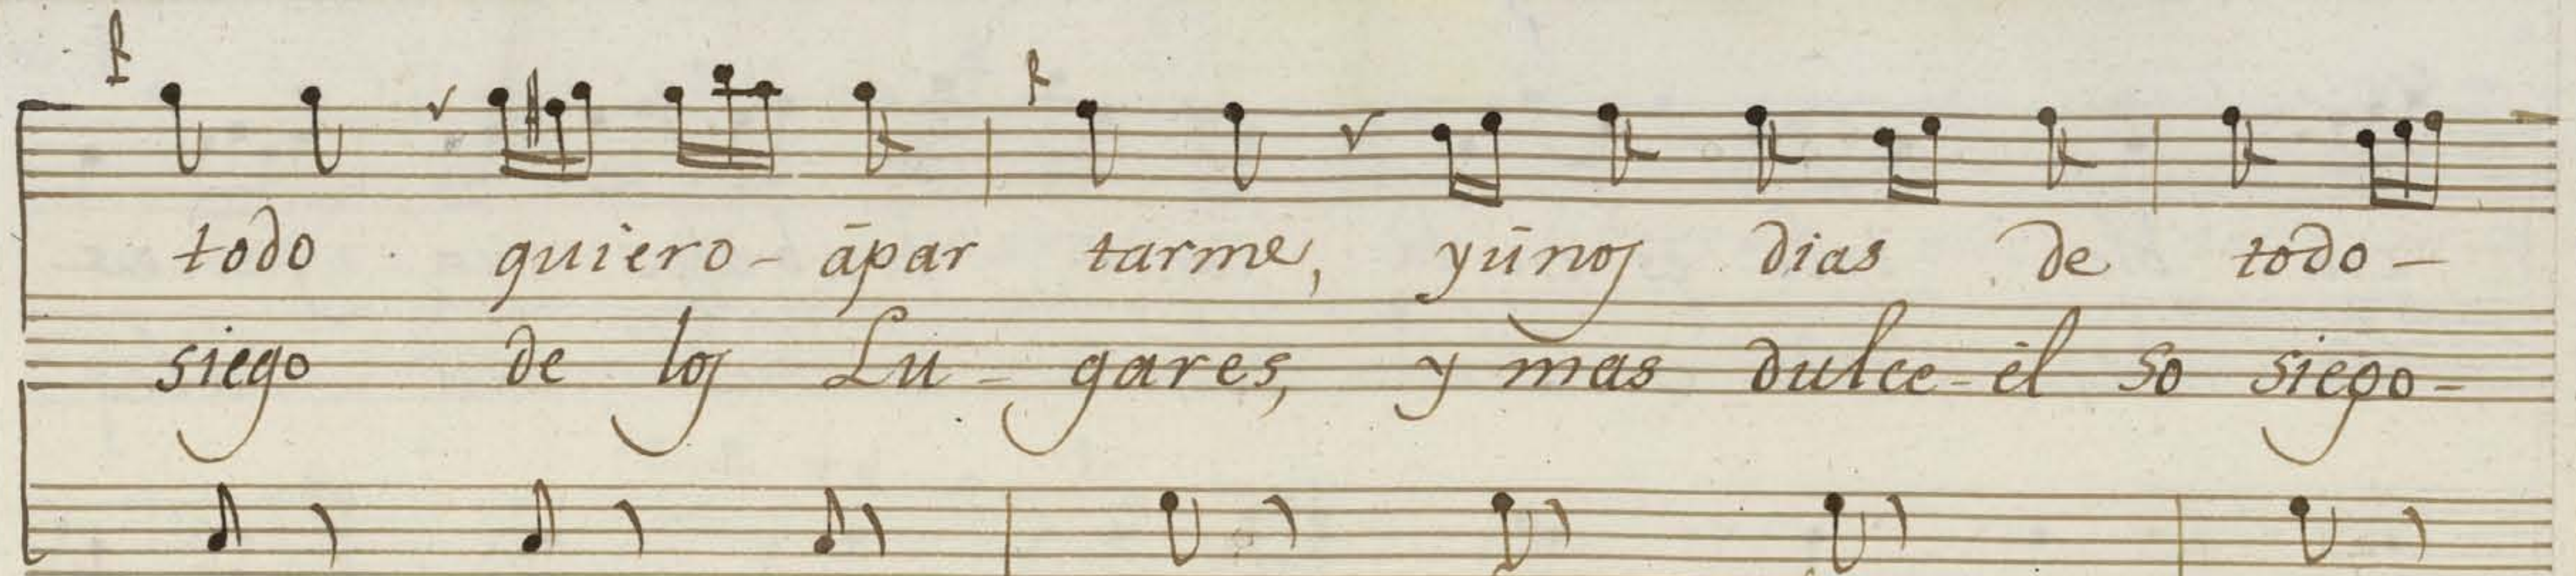 todo quiero - āpar tarme, yūnos dias de todo -
siego de los Lu - gares, y mas dulce - èl so siego -